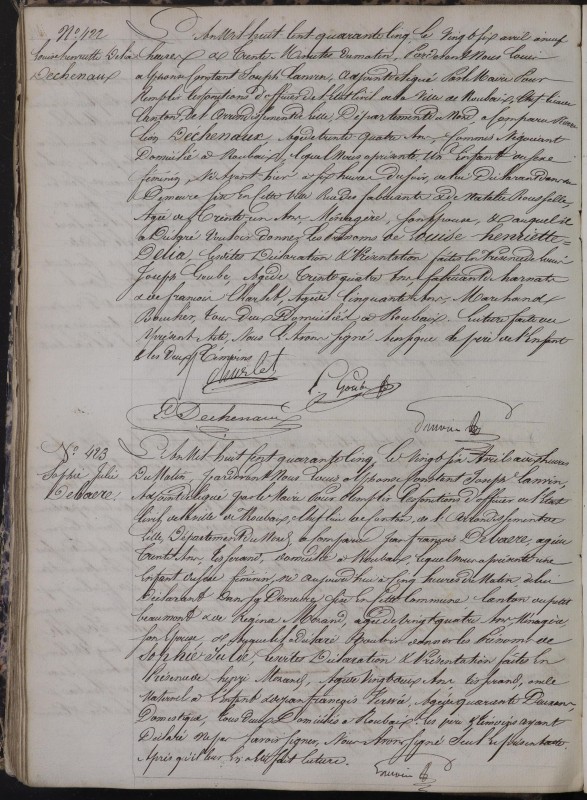 N° 422
Louise henriette Delia
Dechenaux
L'An Mil huit Cent quarante cinq le Vingt six avril a neuf
heures & Trente Minutes du matin, Pardevant Nous Louis
Alphonse Constant Joseph Lanvin, Adjoint délégué Par le Maire Pour
Remplir les fonctions d'officier de l'Etat Civil de la Ville de Roubaix, Chef lieu
Canton de l'Arrondissement de Lille, Département du Nord, a Comparu
Léon Dechenaux, Agé de trente quatre Ans, Négociant
Domicilié à Roubaix, lequel Nous a présenté Un Enfant du sexe
féminin, Né Ayant hier à six heures du soir, de lui Déclarant dans sa
Demeure sise en Cette Ville Rue des fabricants & de Natalie
Agée de Trente un Ans, Ménagère, son épouse, & auquel il
a Déclaré Vouloir donner les prénoms de Louise henriette
Delia, lesdites Déclaration & Présentation faites en Présence de
Joseph Goube, Agé de Trente quatre Ans fabricant
& de françois Charlet, Agé de Cinquante Ans, Marchand
Boucher, tous deux Domiciliés à Roubaix. Lecture faite du
Présent Acte, Nous l'Avons signé ainsi que le père de l'Enfant
& les deux Témoins
Charlet
Goube
L. Dechenaux
Lanvin
N° 423
Sophie Julie
Debaere
L'An Mil huit Cent quarante cinq, le Vingt six Avril a heures
Du Matin, pardevant Nous Louis Alphonse Constant Joseph Lanvin,
Adjoint délégué par le Maire Pour Remplir les fonctions d'officier de l'Etat
Civil de la ville de Roubaix, Chef lieu de Canton de l'Arrondissement de
Lille, Département du Nord, a Comparu Jean françois Debaere, agé de
Trente Ans, tisserand, domicilié à Roubaix, lequel Nous a présenté un
Enfant du sexe féminin, né aujourd'hui à Cinq heures du Matin, de lui
Déclarant dans sa Demeure sise en Cette Commune Canton du petit
beaumont & de Regina Morand, agée de vingt quatre Ans, Ménagère
son Epouse, & Auquel il a déclaré Vouloir donner les Prénoms de
Sophie Julie, lesdites Déclaration & Présentation faites En
Présence de Morand, Agé de Vingt deux Ans tisserand, oncle
Maternel à l'Enfant & de Jean françois Agé de quarante Deux ans
Domestique, tous deux Domiciliés à Roubaix. Les père & témoins ayant
Déclaré Ne pas savoir signer, Nous Avons signé Seul le présent acte
Après qu'il leur En a été fait lecture.
Lanvin